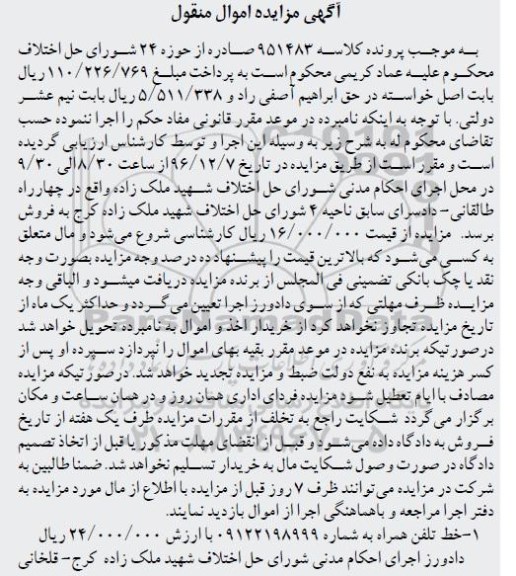 آگهی مزایده اموال منقول
به موجب پرونده کلاسه ۹۵۱۴۸۳ صادره از حوزه ۲۴ شورای حل اختلاف
محکوم علیه عماد کریمی محکوم است به پرداخت مبلغ ۱۱۰/۲۲۶/۷۶۹ ریال
بابت اصل خواسته در حق ابراهیم آصفی راد و ۵/۵۱۱/۳۳۸ ریال بابت نیم عشر
دولتی. با توجه به اینکه نامبرده در موعد مقرر قانونی مفاد حکم را اجرا ننموده حسب
تقاضای محکوم له به شرح زیر به وسیله این اجرا و توسط کارشناس ارزیابی گردیده
است و مقرر است از طریق مزایده در تاریخ ۹۶/۱۲/۷ از ساعت ۸/۳۰ الی ۹/۳۰
در محل اجرای احکام مدنی شورای حل اختلاف شهید ملک زاده واقع در چهارراه
طالقانی- دادسرای سابق ناحیه ۴ شورای حل اختلاف شهید ملک زاده کرج به فروش
برسد. مزایده از قیمت ۱۶/۰۰۰/۰۰۰ ریال کارشناسی شروع می‌شود و مال متعلق
به کسی می‌شود که بالاترین قیمت را پیشنهاد ده درصد وجه مزایده بصورت وجه
نقد یا چک بانکی تضمینی فی المجلس از برنده مزایده دریافت میشود و الباقی وجه
مزایده ظرف مهلتی که از سوی دادورز اجرا تعیین می‌گردد و حداکثر یک ماه از
تاریخ مزایده تجاوز نخواهد کرد از خریدار اخذ و اموال به نامبرده تحویل خواهد شد
درصورتیکه برنده مزایده در موعد مقرر بقیه بهای اموال را نپردازد سپرده او پس از
کسر هزینه مزایده به نفع دولت ضبط و مزایده تجدید خواهد شد. درصورتیکه مزایده
مصادف با ایام تعطیل شود مزایده فردای اداری همان روز و در همان ساعت و مکان
برگزار می‌گردد شکایت راجع به تخلف از مقررات مزایده ظرف یک هفته از تاریخ
فروش به دادگاه داده می‌شود و قبل از انقضای مهلت مذکور یا قبل از اتخاذ تصمیم
دادگاه در صورت وصول شکایت مال به خریدار تسلیم نخواهد شد. ضمنا طالبین به
شرکت در مزایده می‌توانند ظرف ۷ روز قبل از مزایده با اطلاع از مال مورد مزایده به
دفتر اجرا مراجعه و باهماهنگی اجرا از اموال بازدید نمایند.
۱-خط تلفن همراه به شماره ۰۹۱۲۲۱۹۸۹۹۹ با ارزش ۲۴/۰۰۰/۰۰۰ ریال
دادورز اجرای احکام مدنی شورای حل اختلاف شهید ملک زاده کرج- قلخانی
ParsNamadData